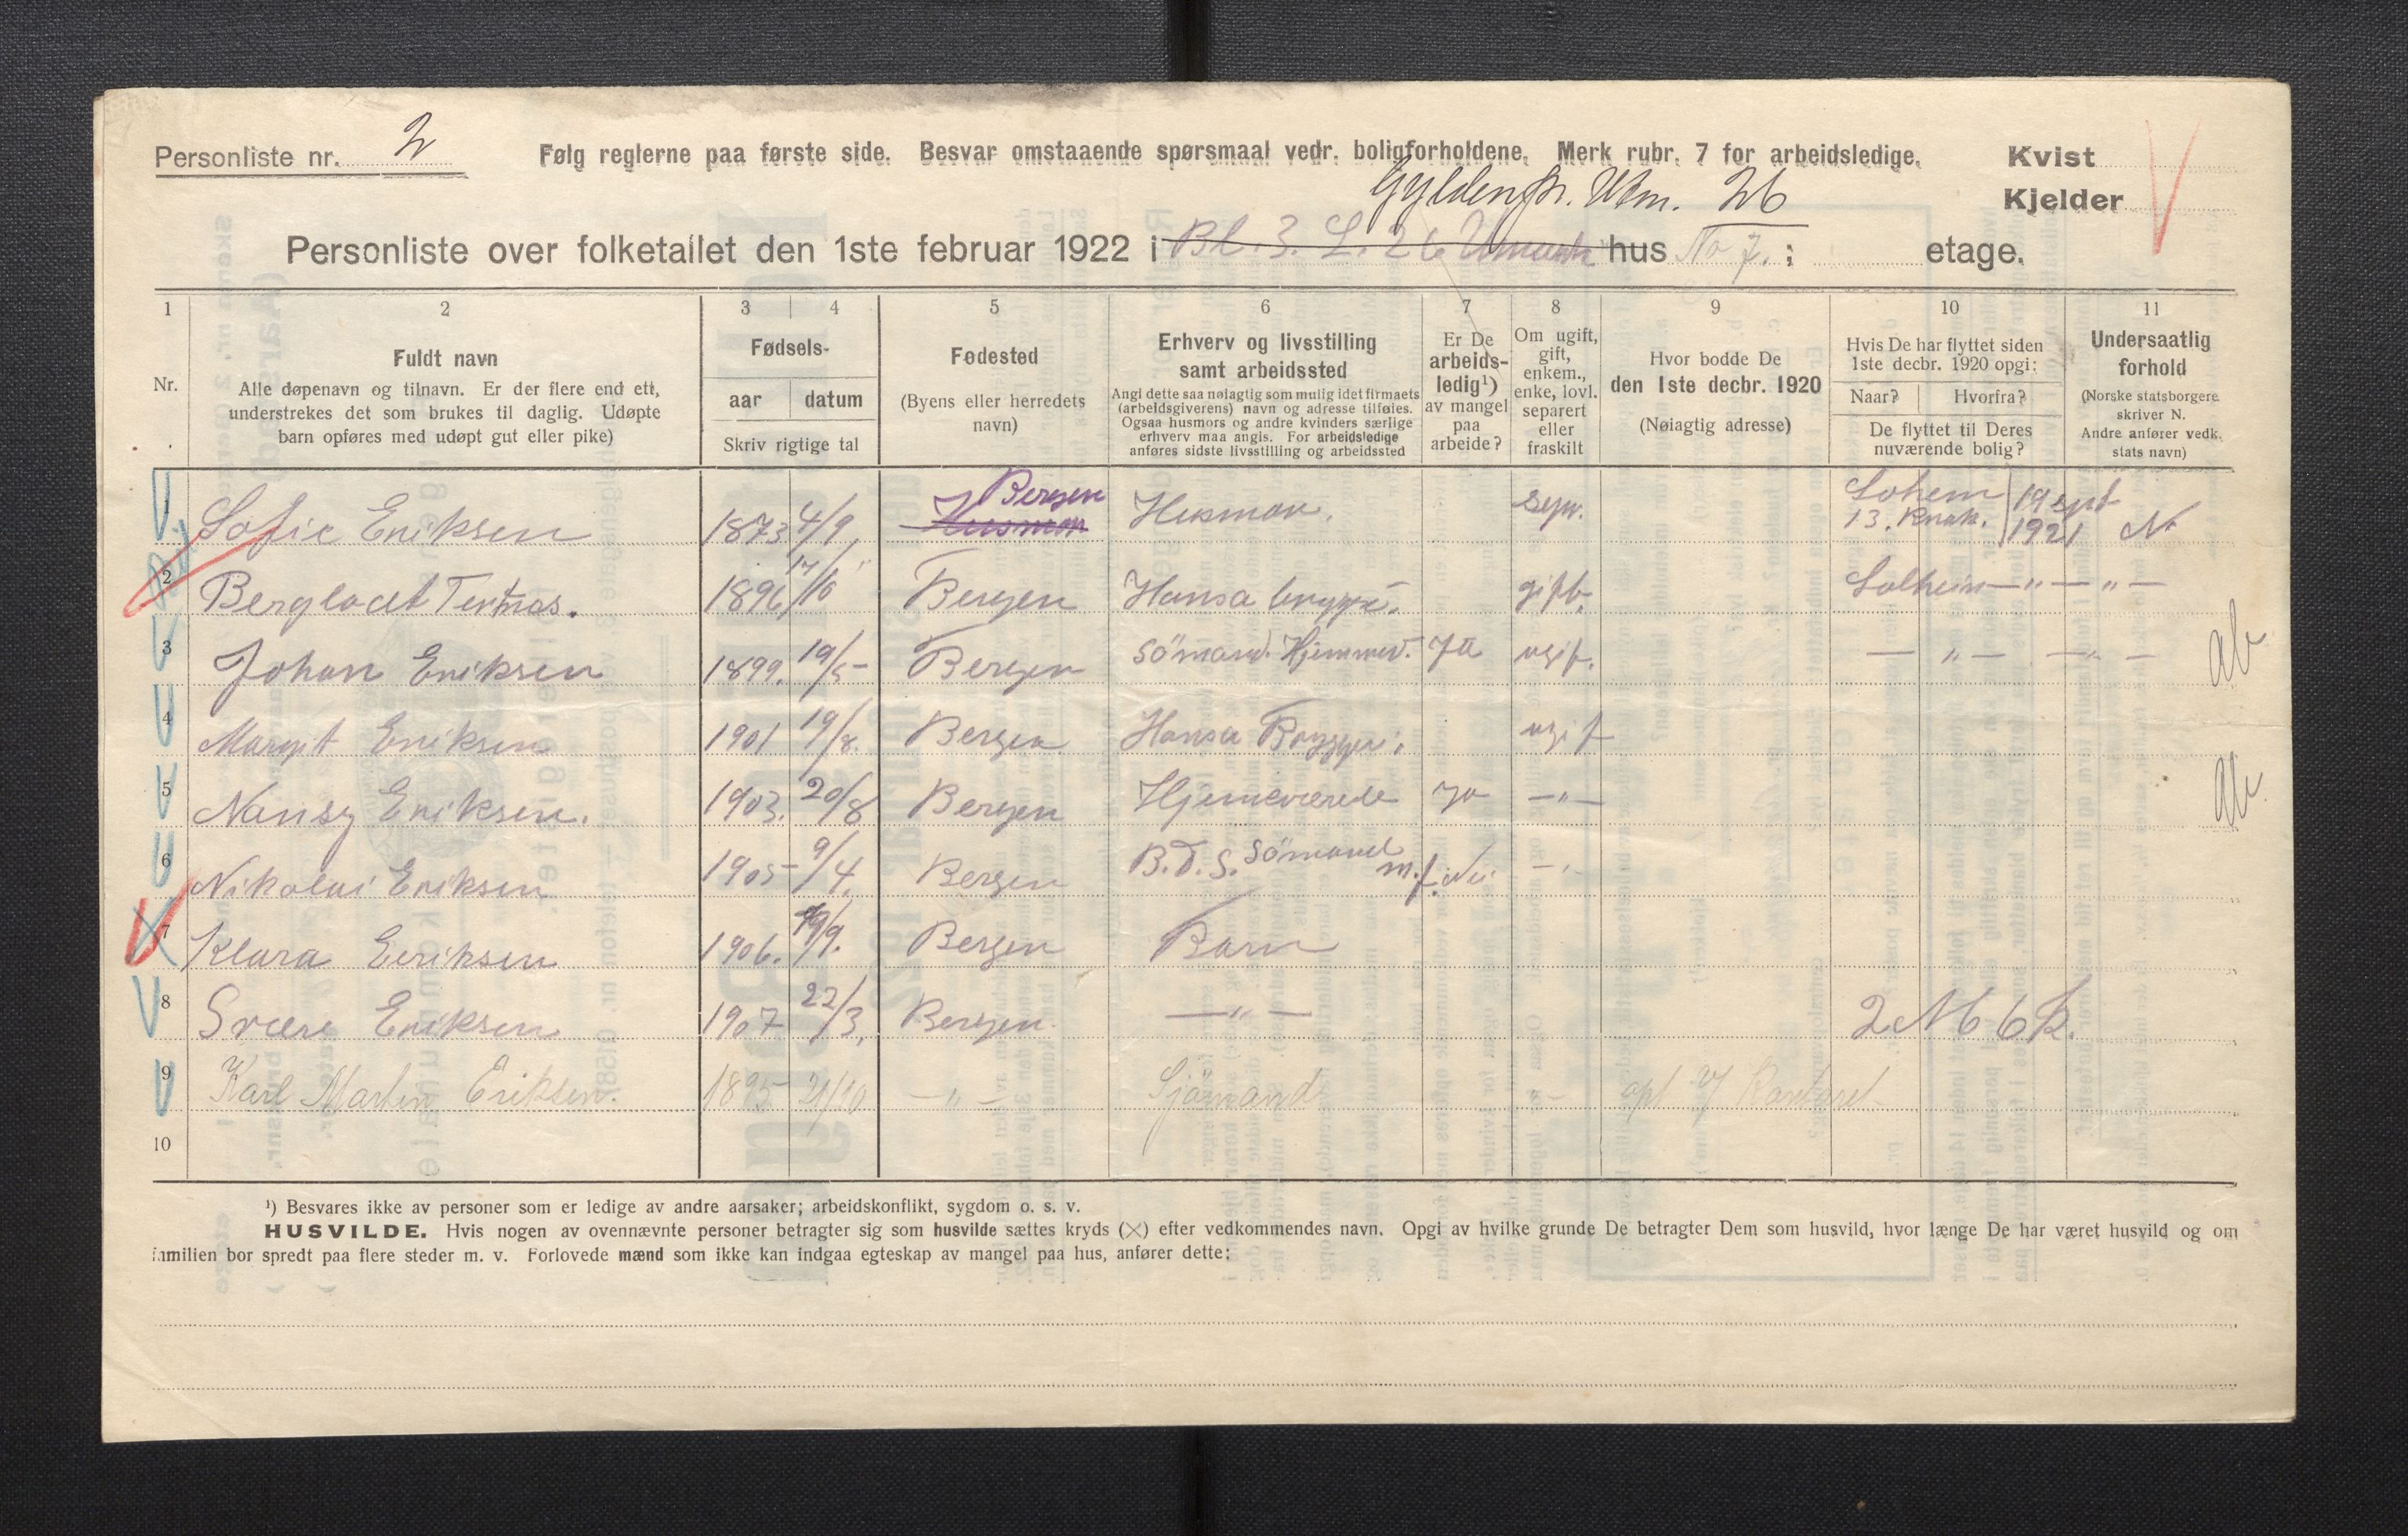 Personliste nr. 2 Følg reglerne paa første side. Besvar omstaaende spørsmaal vedr. boligforholdene. Merk rubr. 7 for arbeidsledige. Kvist
Kjelder
26
Personliste over folketallet den 1ste februar 1922 i Bl. 3. L. 26 hus No 7. ; etage.
1 2 3 4 5 6 7 8 9 10 11
Nr.
Fuldt navn
Alle døpenavn og tilnavn. Er der flere end ett,
understrekes det som brukes til daglig. Udøpte
barn opføres med udøpt gut eller pike)
Fødsels-
aar datum
Skriv rigtige tal
Fødested
(Byens eller herredets
navn)
Erhverv og livsstilling
samt arbeidssted
Angi dette saa nøiagtig som mulig idet firmaets
(arbeidsgiverens) navn og adresse tilføies.
Ogsaa husmors og andre kvinders særlige
erhverv maa angis. For arbeidsledige
anføres sidste livsstilling og arbeidssted
Er De
arbeids-
ledig¹)
av mangel
paa
arbeide?
Om ugift,
gift,
enkem.,
enke, lovl.
separert
eller
fraskilt
Hvor bodde De
den 1ste decbr. 1920
(Nøiagtig adresse)
Hvis De har flyttet siden
1ste decbr. 1920 opgi:
Naar? Hvorfra?
De flyttet til Deres
nuværende bolig?
Undersaatlig
forhold
(Norske statsborgere
skriver N.
Andre anfører vedk.
stats navn)
Bergen
1 Sofie Eriksen 1873 4/9 Husmor Husmor. sep. 13. 19 sept 1921 N
2 1896 17/10 Bergen Hansa brygg. gift. Solheim — " — — " —
3 Johan Eriksen 1899. 19/5 Bergen Sömand. Hjemmev. Ja ugif. — " — — " —
ab
4 Margit Eriksen 1901 19/8. Bergen Hansa Bryggri. ugif
5 Nansy Eriksen. 1903. 20/8 Bergen Hjemeværede Ja — " —
ab
6 Nikolai Eriksen 1905 9/4. Bergen B.D.S. Sömand m.f. Nei — " —
7 Klara Eeriksen 1906. 19/9. Bergen Barn
8 Svære Eriksen 1907 22/3. Bergen. — " — 2 M 6 K.
9 Karl Martin Eriksen. 1895 21/10 — " — Sjömand
10
¹) Besvares ikke av personer som er ledige av andre aarsaker; arbeidskonflikt, sygdom o. s. v.
HUSVILDE. Hvis nogen av ovennævnte personer betragter sig som husvilde sættes kryds (×) efter vedkommendes navn. Opgi av hvilke grunde De betragter Dem som husvild, hvor længe De har været husvild og om
familien bor spredt paa flere steder m. v. Forlovede mænd som ikke kan indgaa egteskap av mangel paa hus, anfører dette: